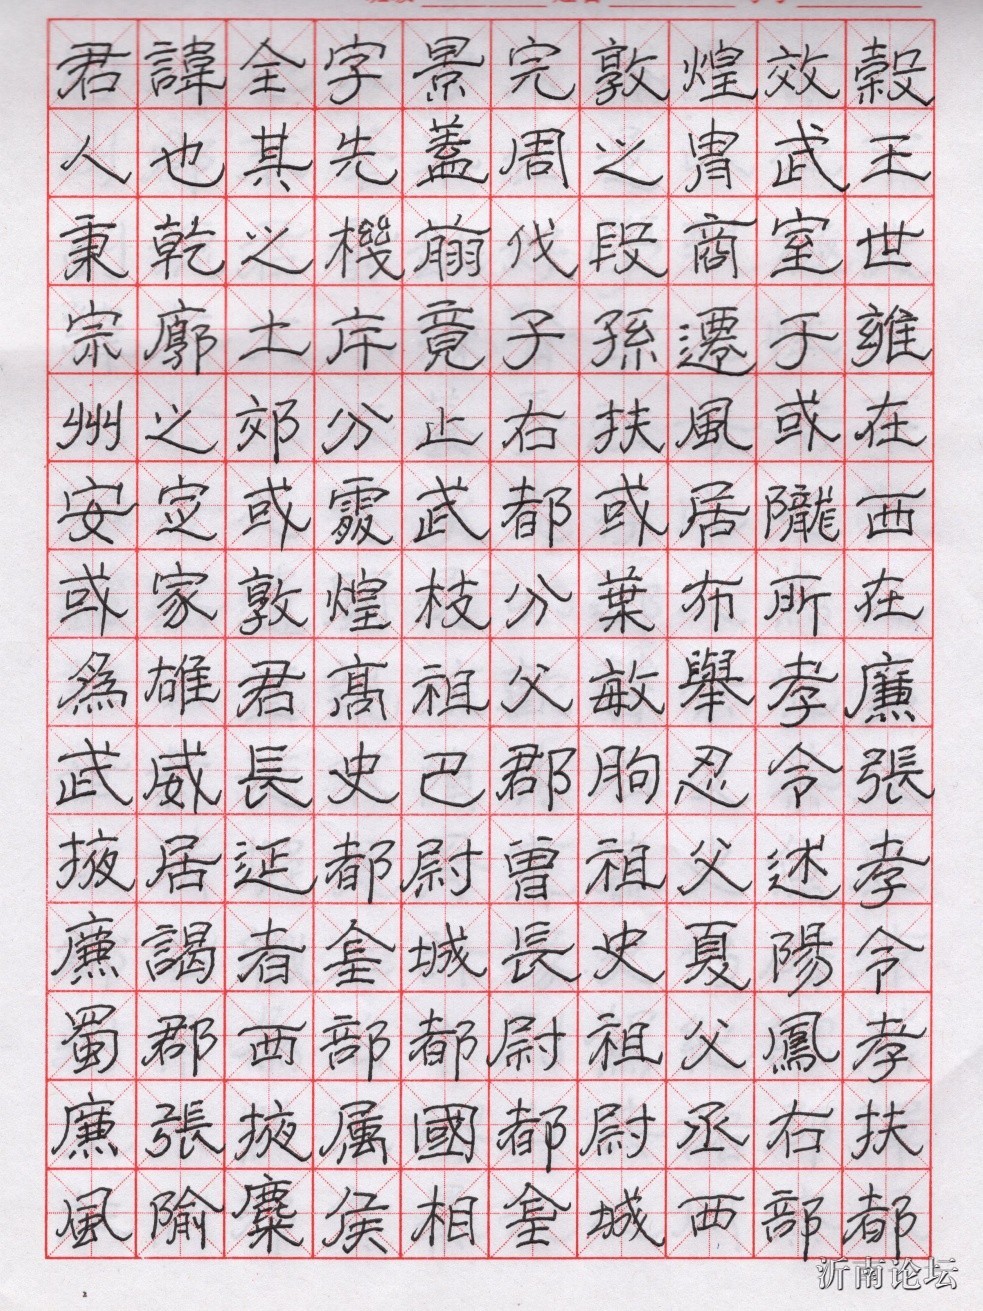 君諱全字景完敦煌效穀
人也其先蓋周之胄武王
秉乾之機翦伐殷商室世
宗廓土斥竟子孫遷于雍
州之郊分止右扶風或在
安定或處武都或居隴西
或家敦煌枝分葉布所在
爲雄君高祖父敏舉孝廉
武威長史巴郡朐忍令張
掖居延都尉曾祖父述孝
廉謁者金城長史夏陽令
蜀郡西部都尉祖父鳳孝
廉張掖属國都尉丞右扶
風隃麋侯相金城西部都
沂南论坛